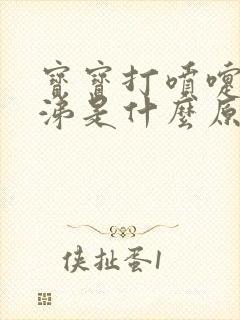 寶寶打噴嚏
涕是什麼原
侠扯蛋1